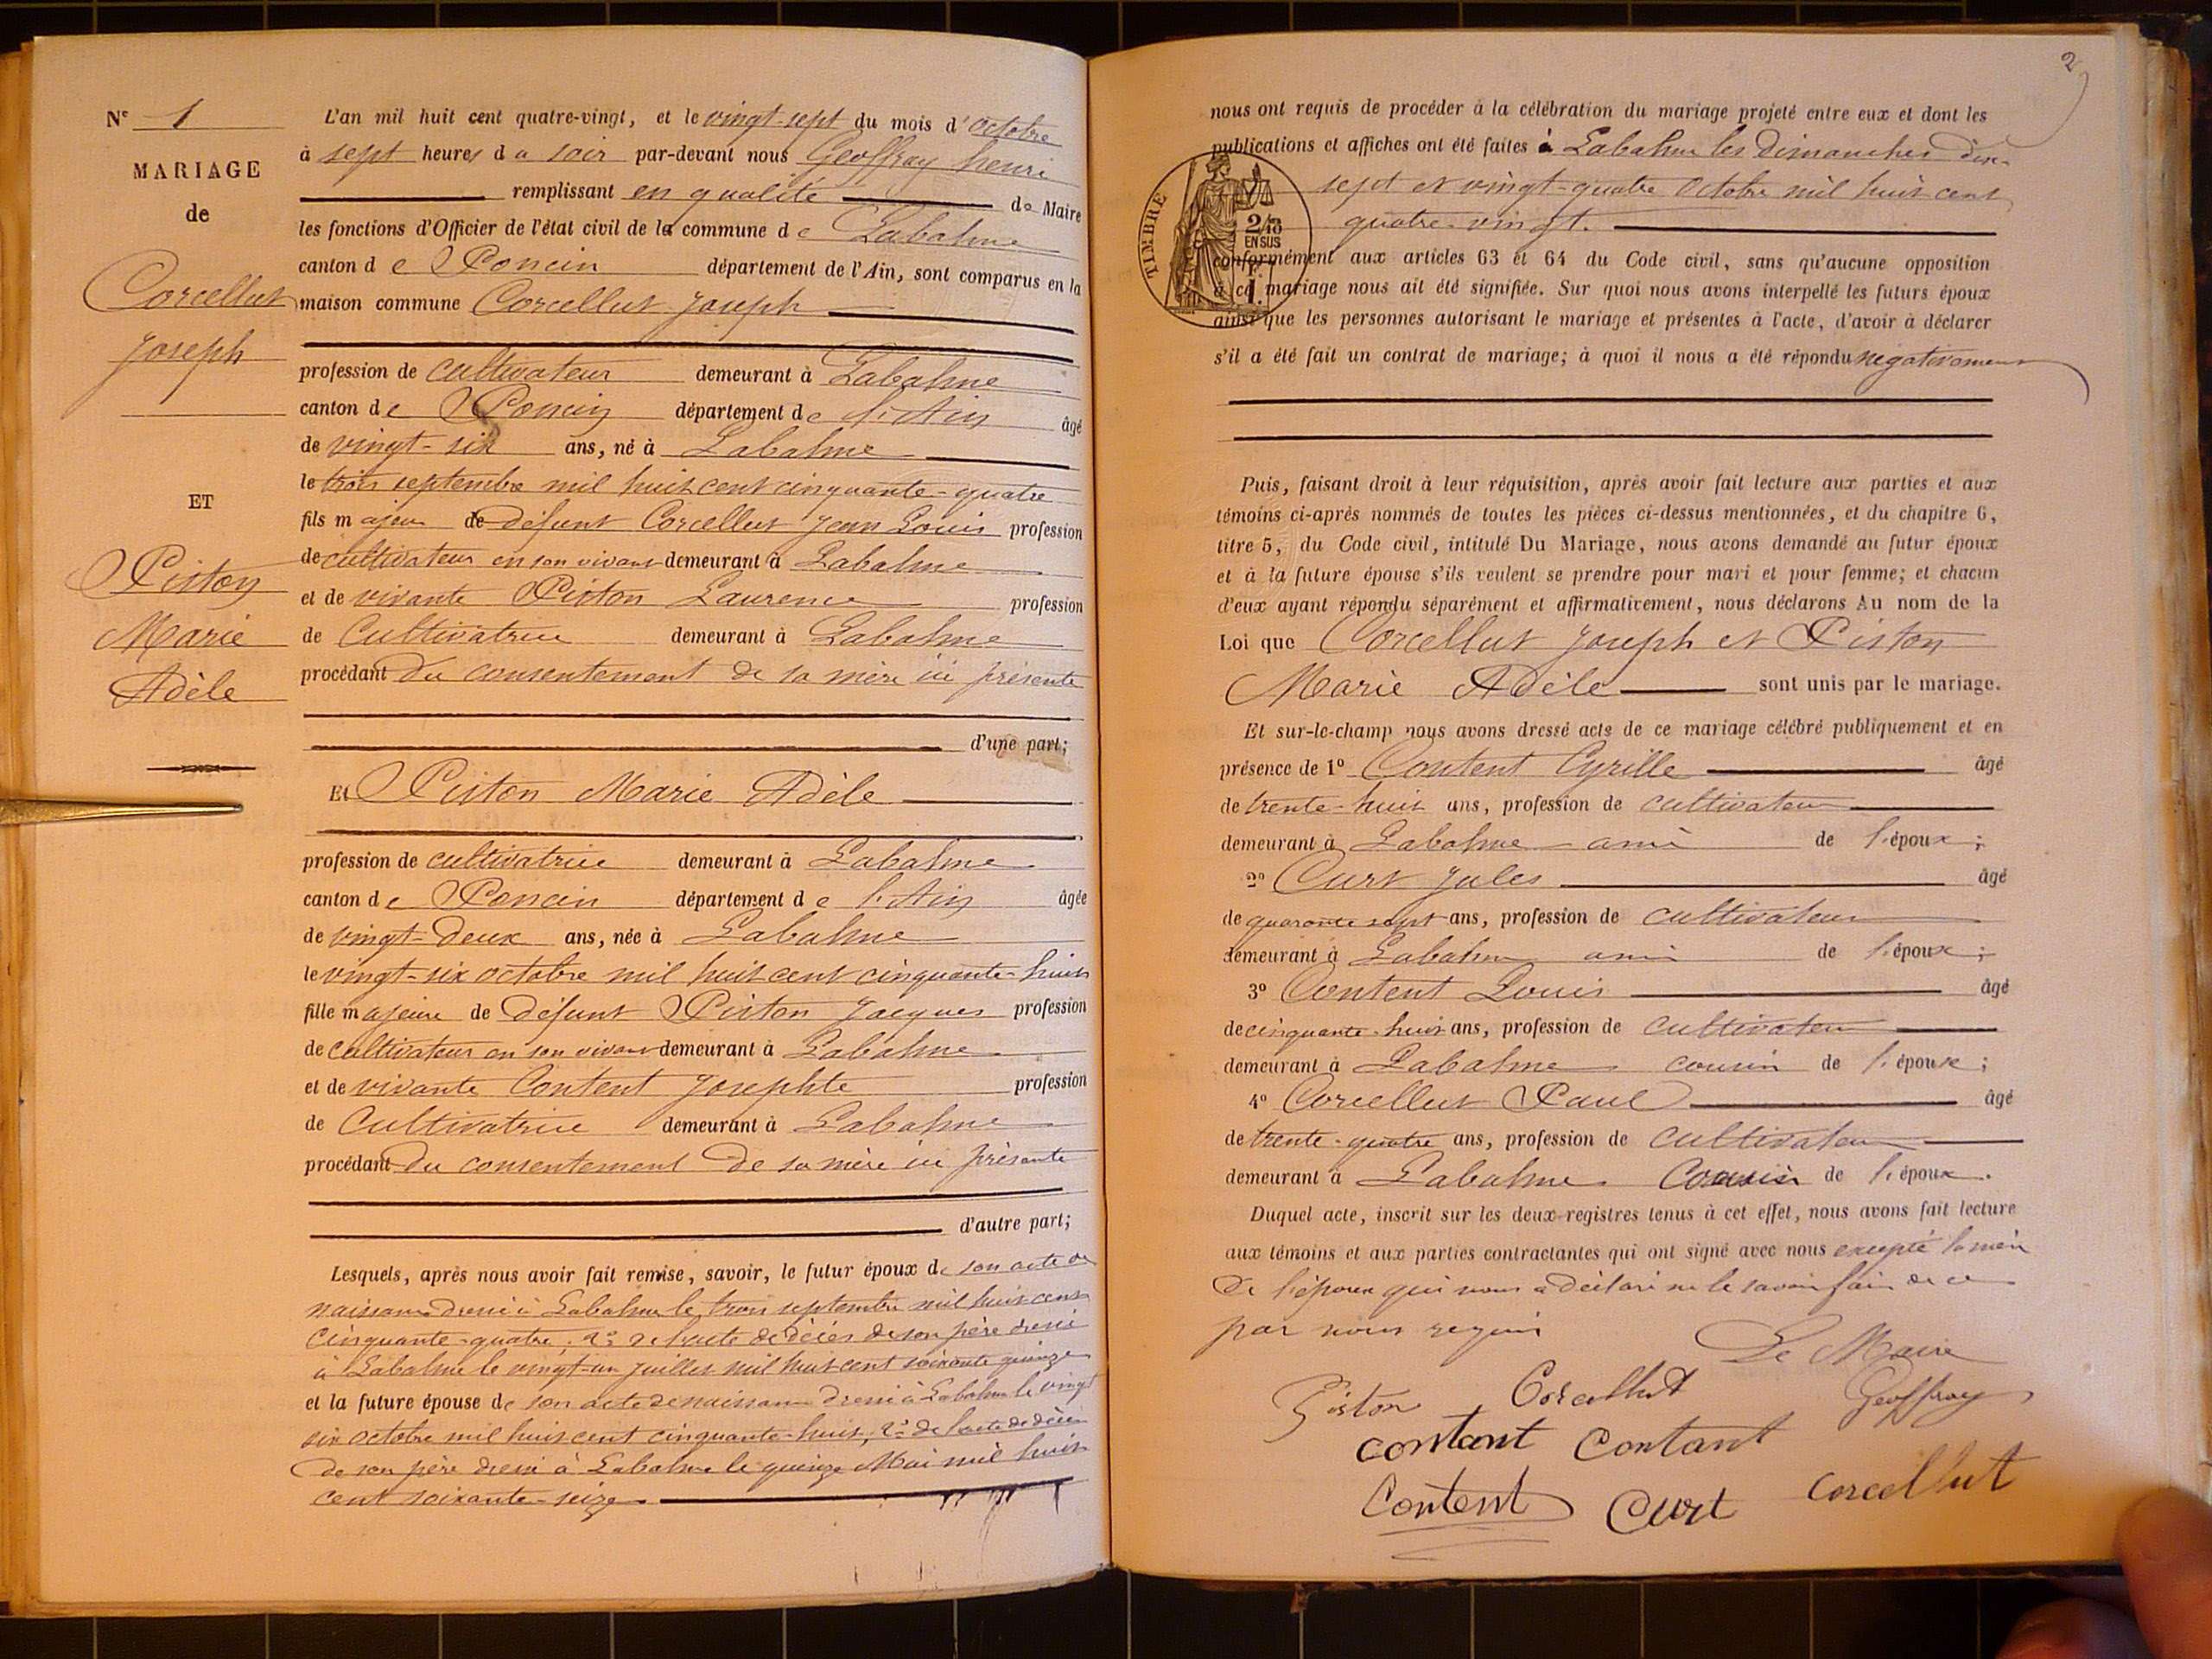 Nº 1
MARIAGE
de
Corcellut
Joseph
ET
Piston
Marie
Adèle
L'an mil huit cent quatre-vingt, et le vingt-sept du mois d'octobre
à sept heures du soir par-devant nous Geoffray henri
remplissant en qualité de Maire
les fonctions d'Officier de l'état civil de la commune de Labalme
canton de Poncin département de l'Ain, sont comparus en la
maison commune Corcellut Joseph
profession de cultivateur demeurant à Labalme
canton de Poncin département de l'Ain âgé
de vingt-six ans, né à Labalme
le trois septembre mil huit cent cinquante-quatre
fils majeur de défunt Corcellut Jean Louis profession
de cultivateur en son vivant demeurant à Labalme
et de vivante Piston Laurence profession
de Cultivatrice demeurant à Labalme
procédant du consentement de sa mère ici présente
d'une part;
Et Piston Marie Adèle
profession de cultivatrice demeurant à Labalme
canton de Poncin département de l'Ain âgée
de vingt-deux ans, née à Labalme
le vingt-six octobre mil huit cent cinquante-huit
fille majeure de défunt Piston Jacques profession
de cultivateur en son vivant demeurant à Labalme
et de vivante Content Josephte profession
de Cultivatrice demeurant à Labalme
procédant du consentement de sa mère ici présente
d'autre part;
Lesquels, après nous avoir fait remise, savoir, le futur époux de son acte de
naissance dressé à Labalme le trois septembre mil huit cent
cinquante-quatre, 2º de l'acte de décès de son père dressé
à Labalme le vingt-un juillet mil huit cent soixante quinze
et la future épouse de son acte de naissance dressé à Labalme le vingt
six octobre mil huit cent cinquante-huit, 2º de l'acte de décès
de son père dressé à Labalme le quinze Mai mil huit
cent soixante-seize
2
nous ont requis de procéder à la célébration du mariage projeté entre eux et dont les
publications et affiches ont été faites à Labalme les dimanches dix-
sept et vingt-quatre Octobre mil huit cent
quatre-vingt.
TIMBRE
2/10
EN SUS
conformément aux articles 63 et 64 du Code civil, sans qu'aucune opposition
à ce mariage nous ait été signifiée. Sur quoi nous avons interpellé les futurs époux
ainsi que les personnes autorisant le mariage et présentes à l'acte, d'avoir à déclarer
s'il a été fait un contrat de mariage; à quoi il nous a été répondu négativement
Puis, faisant droit à leur réquisition, après avoir fait lecture aux parties et aux
témoins ci-après nommés de toutes les pièces ci-dessus mentionnées, et du chapitre 6,
titre 5, du Code civil, intitulé Du Mariage, nous avons demandé au futur époux
et à la future épouse s'ils veulent se prendre pour mari et pour femme; et chacun
d'eux ayant répondu séparément et affirmativement, nous déclarons Au nom de la
Loi que Corcellut Joseph et Piston
Marie Adèle sont unis par le mariage.
Et sur-le-champ nous avons dressé acte de ce mariage célébré publiquement et en
présence de 1º Content Cyrille âgé
de trente-huit ans, profession de cultivateur
demeurant à Labalme ami de l'époux;
2º Curt Jules âgé
de quarante sept ans, profession de cultivateur
demeurant à Labalme ami de l'époux;
3º Content Louis âgé
de cinquante-huit ans, profession de cultivateur
demeurant à Labalme cousin de l'épouse;
4º Corcellut Paul âgé
de trente-quatre ans, profession de cultivateur
demeurant à Labalme Cousin de l'époux.
Duquel acte, inscrit sur les deux registres tenus à cet effet, nous avons fait lecture
aux témoins et aux parties contractantes qui ont signé avec nous excepté la mère
de l'époux qui nous a déclaré ne le savoir faire de ce
par nous requis
Le Maire
Piston Corcellut Geoffray
contant Contant
Content Curt Corcellut